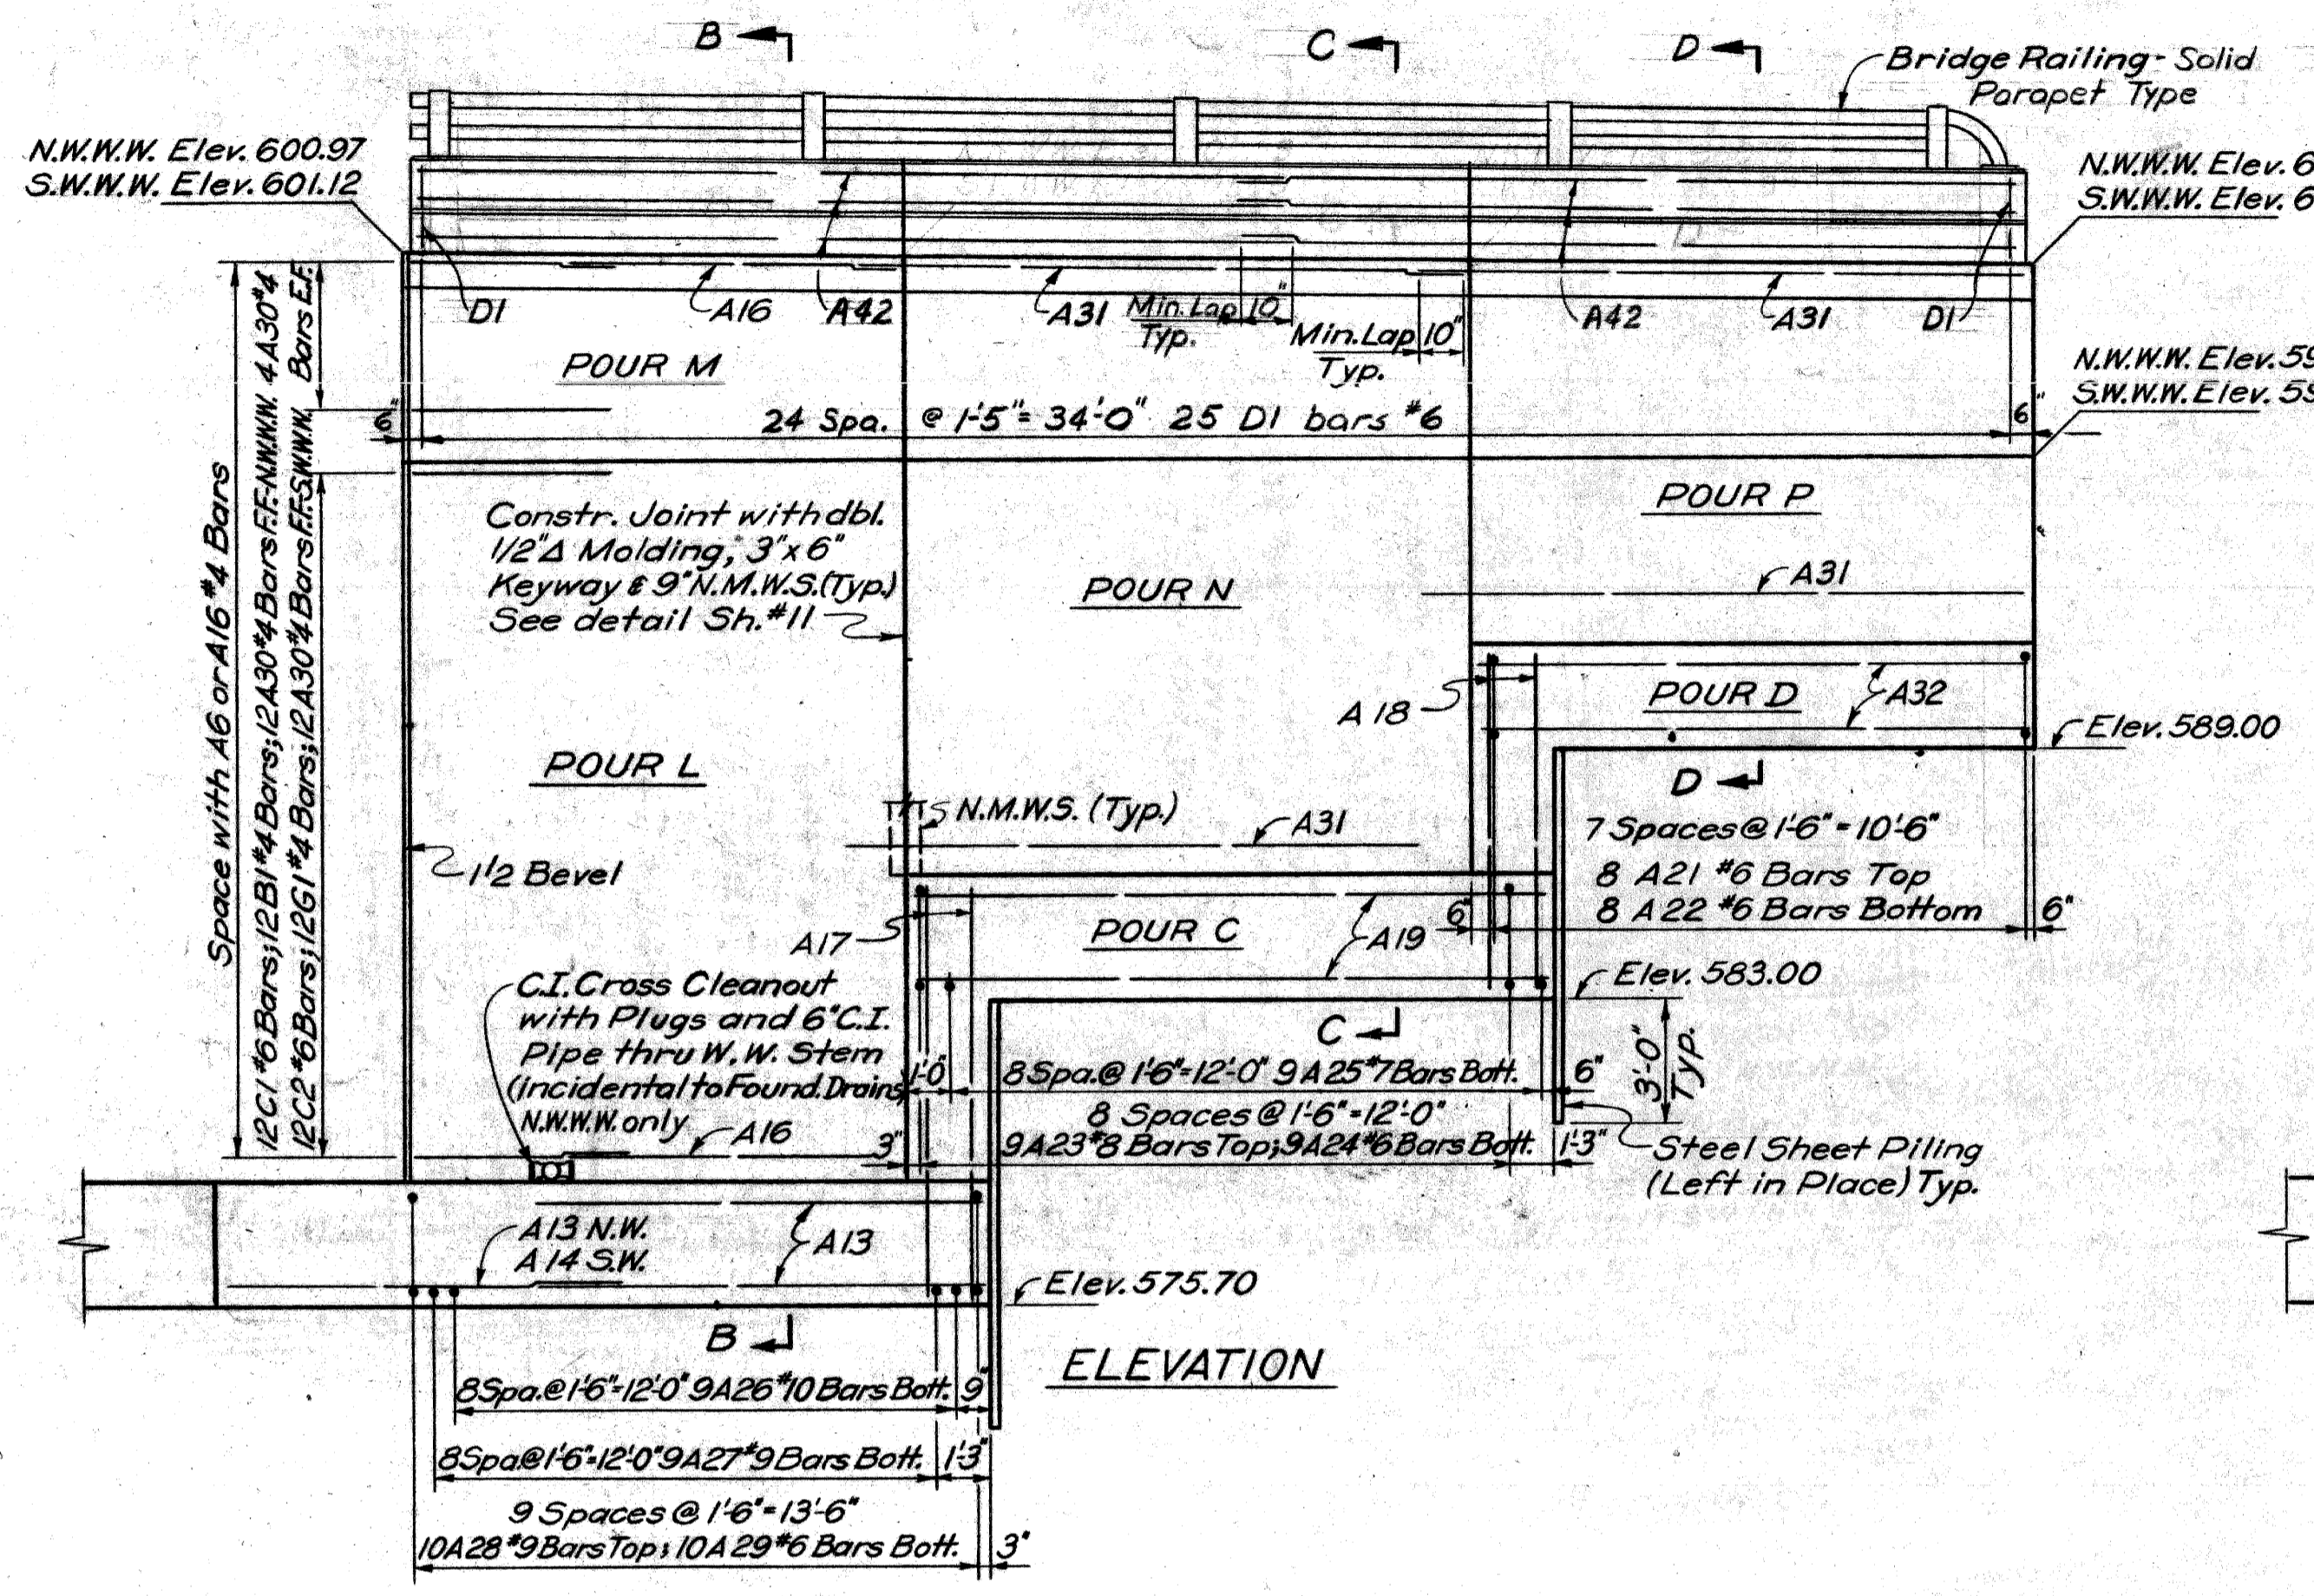 B
C
D
Bridge Railing - Solid
Parapet Type
N.W.W.W. Elev. 600.97
S.W.W.W. Elev. 601.12
N.W.W.W. Elev. 6
S.W.W.W. Elev. 6
D1
A16
A42
A31
Min. Lap 10"
Typ.
Min. Lap 10"
Typ.
A42
A31
D1
POUR M
N.W.W.W. Elev. 59
S.W.W.W. Elev. 59
6"
24 Spa. @ 1'-5" = 34'-0" 25 D1 bars #6
6"
Space with A6 or A16 #4 Bars
12C1 #6 Bars; 12B1 #4 Bars; 12A30 #4 Bars F.F.-N.W.W.W. 4A30 #4
12C2 #6 Bars; 12G1 #4 Bars; 12A30 #4 Bars F.F.S.W.W.W. Bars E.F.
Constr. Joint with dbl.
1/2" Δ Molding, 3" x 6"
Keyway & 9" N.M.W.S. (Typ.)
See detail Sh. #11
POUR P
POUR N
A31
A18
POUR D
A32
Elev. 589.00
POUR L
D
N.M.W.S. (Typ.)
A31
7 Spaces @ 1'-6" = 10'-6"
8 A21 #6 Bars Top
8 A22 #6 Bars Bottom
6"
1 1/2 Bevel
A17
POUR C
A19
6"
Elev. 583.00
C.I. Cross Cleanout
with Plugs and 6" C.I.
Pipe thru W.W. Stem
(incidental to Found. Drains)
N.W.W.W. only
A16
C
3'-0"
Typ.
1'-0"
8 Spa. @ 1'-6" = 12'-0" 9 A25 #7 Bars Bott.
6"
8 Spaces @ 1'-6" = 12'-0"
3"
9A23 #8 Bars Top; 9A24 #6 Bars Bott.
1'-3"
Steel Sheet Piling
(Left in Place) Typ.
A13 N.W.
A14 S.W.
A13
Elev. 575.70
B
ELEVATION
8 Spa. @ 1'-6" = 12'-0" 9A26 #10 Bars Bott.
9"
8 Spa @ 1'-6" = 12'-0" 9A27 #9 Bars Bott.
1'-3"
9 Spaces @ 1'-6" = 13'-6"
10A28 #9 Bars Top; 10A29 #6 Bars Bott.
3"